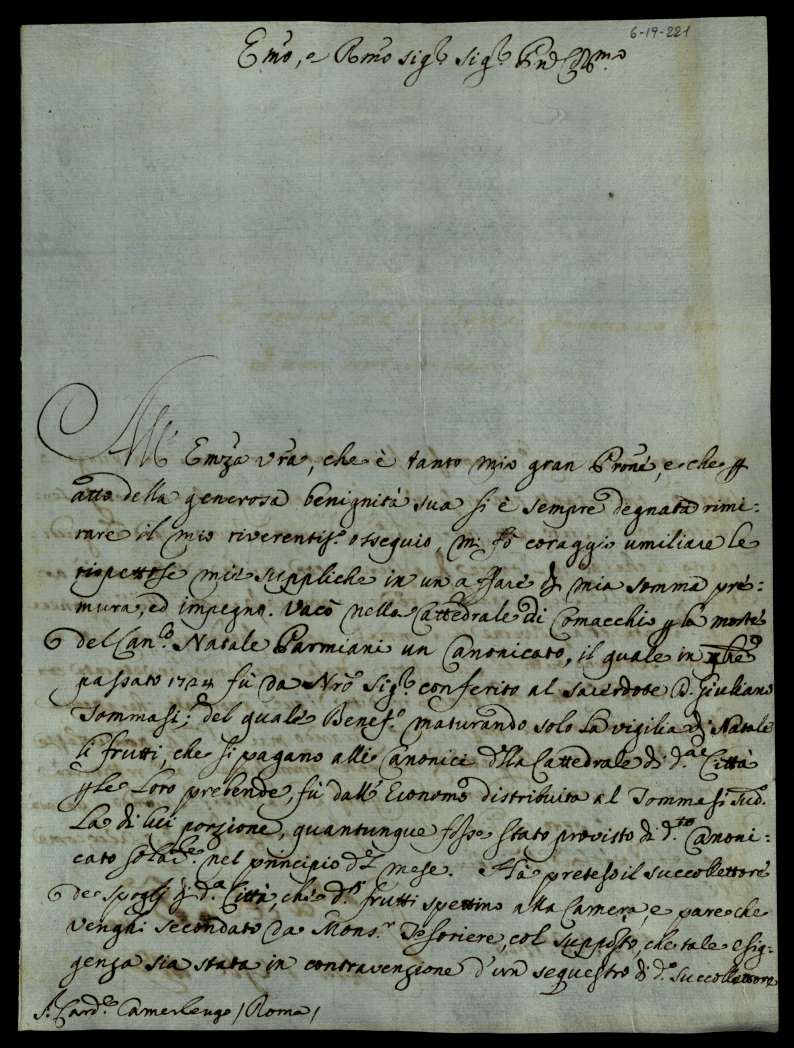 6-19-221
Emo, e Rmo sig.r sig.r Pne Colmo
All' Emza vra, che è tanto mio gran Prone, e che p
atto della generosa benignità sua si è sempre degnata rimi:
rare il mio riverentis.o ossequio, mi fò coraggio umiliare le
rispettose mie suppliche in un affare di mia somma pre:
mura, ed impegno. Vacò nella Cattedrale di Comacchio p la morte
del Can.co Natale Parmiani un Canonicato, il quale in
passato 1724 fù da Nro Sig.re conferito al Sacerdote D. Giuliano
Tommasi; del quale Benef.o maturando solo la vigilia di Natale
li frutti, che si pagano alli Canonici della Cattedrale di d.a Città
p le Loro prebende, fù dall' Economo distribuita al Tommasi sud.o
La di lui porzione, quantunque fosse stato provisto di d.to Canoni:
cato nel principio d.l mese. Hà preteso il succollettore
de spogli di d.a Città, che d.i frutti spettino alla Camera, e pare che
venghi secondato da Mons.r Tesoriere, col supposto, che tale esig:
genza sia stata in contravenzione d'un sequestro di d.o succollettore
S.r Card.e Camerlengo / Roma /